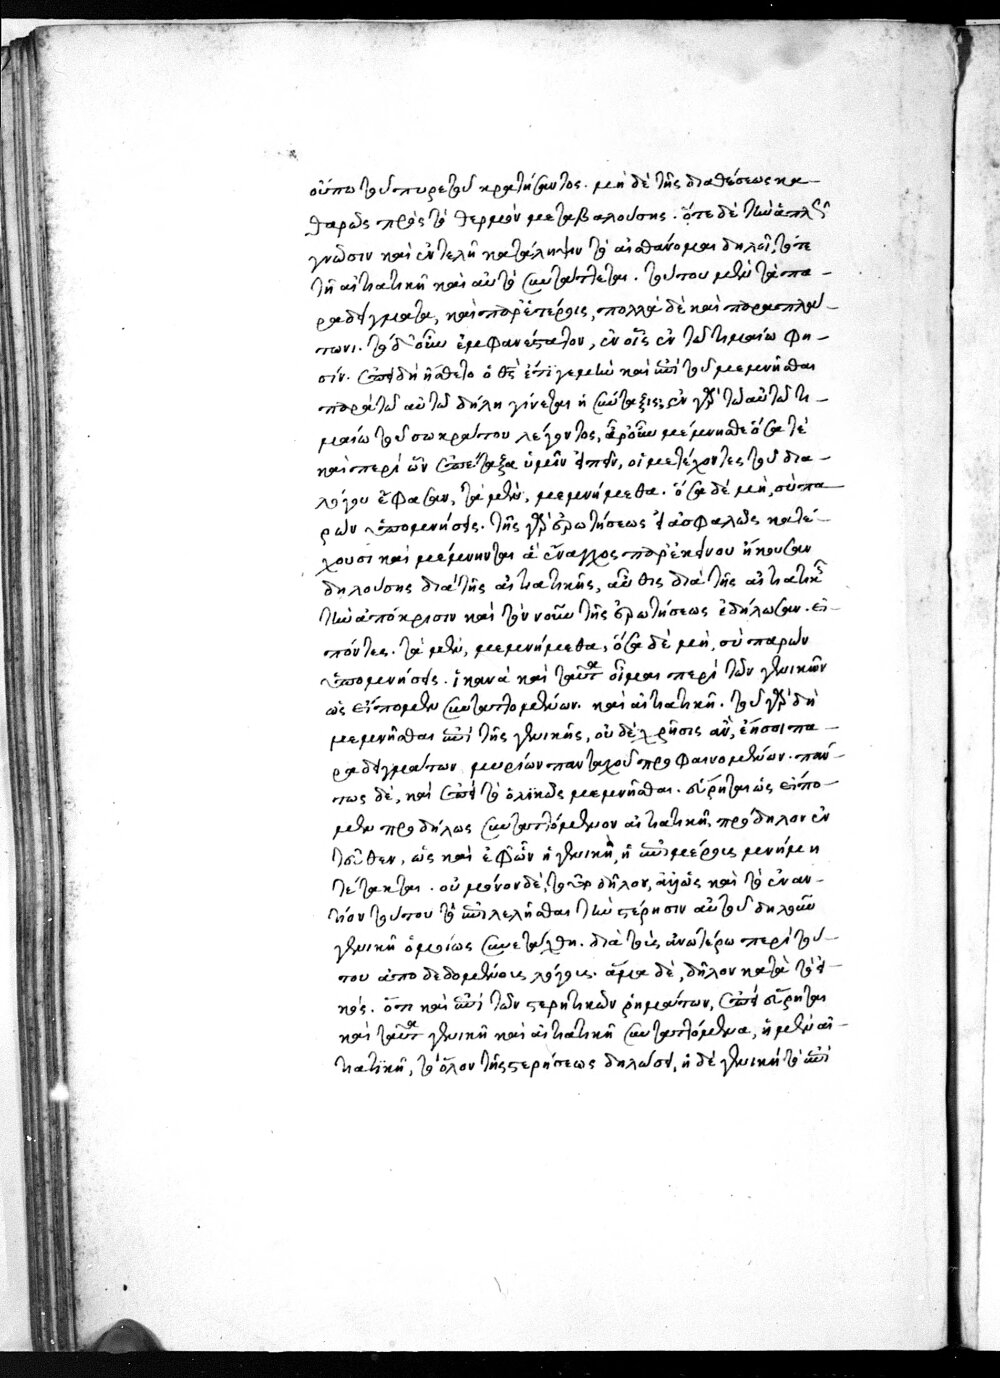 οὔπω τοῦ πυρετοῦ κρατήσαντος. μὴ δὲ τῆς διαθέσεως κα-
θαρῶς πρὸς τὸ θερμὸν μεταβαλούσης. ὅτε δὲ τὴν ἁπλῆ
γνῶσιν καὶ ἐντελῆ κατάληψιν τὸ αἰσθάνομαι δηλοῖ, τότε
τῇ αἰτιατικῇ καὶ αὐτὸ συντάττεται. τούτου μὲν τὰ πα-
ραδείγματα, καὶ παρ' ἑτέροις, πολλὰ δὲ καὶ παρὰ πλά-
τωνι. τὸ δ' οὖν ἐμφανέστατον, ἐν οἷς ἐν τῷ τιμαίῳ φη-
σίν. ἐπειδὴ ᾔσθετο ὁ θς καὶ ἐπὶ τοῦ μεμνῆσθαι
παρὰ τῷ αὐτῷ δήλη γίνεται ἡ σύνταξις; ἐν γὰρ τῷ αὐτῷ τι-
μαίῳ τοῦ σωκράτου λέγοντος, ἆρ' οὖν μέμνησθε ὅσα τὲ
καὶ περὶ ὧν ἐπέταξα ὑμῖν εἰπεῖν, οἱ μετέχοντες τοῦ δια-
λόγου ἔφασαν, τὰ μὲν, μεμνήμεθα. ὅσα δὲ μὴ, σὺ πα-
ρὼν ὑπομνήσεις. τῆς γὰρ ἐρωτήσεως εἰ ἀσφαλῶς κατέ-
χουσι καὶ μέμνηνται ἃ ἔναγχος παρ' ἐκείνου ἤκουσαν
δηλούσης διὰ τῆς αἰτιατικῆς, αὖθις διὰ τῆς αἰτιατικῆς
τὴν ἀπόκρισιν καὶ τὸν νοῦν τῆς ἐρωτήσεως ἐδήλωσαν. εἰ-
πόντες. τὰ μὲν, μεμνήμεθα, ὅσα δὲ μὴ, σὺ παρὼν
ὑπομνήσεις. ἱκανὰ καὶ ταῦτα οἶμαι περὶ τῶν γενικῶν
ὡς εἴπομεν συνταττομένων. καὶ αἰτιατικῇ. τοῦ γὰρ δὴ
μεμνῆσθαι ἐπὶ τῆς γενικῆς, οὐδὲ χρῆσις ἂν, εἴη σοι πα-
ραδειγμάτων μυρίων πανταχοῦ προφαινομένων. πάν-
τως δὲ, καὶ ἐπεὶ τὸ ὁλικῶς μεμνῆσθαι. εὕρηται ὡς εἴπο-
μεν προδήλως συνταττόμενον αἰτιατικῇ, πρόδηλον ἐν
τεῦθεν, ὡς καὶ ἐφ' ὧν ἡ γενικὴ, ἡ ἐπιμέρους μνήμη
τέτακται. οὐ μόνον δὲ, τοῦτο δῆλον, ἀλλ' ὡς καὶ τὸ ἐναν-
τίον τούτου τὸ ἐπιλελῆσθαι τὴν στέρησιν αὐτοῦ δηλοῦν
γενικῇ ὁμοίως συνετάχθη. διὰ τοὺς ἀνωτέρω περὶ τού-
του ἀποδεδομένους λόγους. ἅμα δὲ, δῆλον κατὰ τὸ εἰ-
κός. ὅτι καὶ ἐπὶ τῶν στερητικῶν ῥημάτων, ἐπεὶ εὕρηται
καὶ ταῦτα γενικῇ καὶ αἰτιατικῇ συνταττόμενα, ἡ μὲν αἰ-
τιατικὴ, τὸ ὅλον τῆς στερήσεως δηλώσει, ἡ δὲ γενικὴ τὸ ἐπὶ